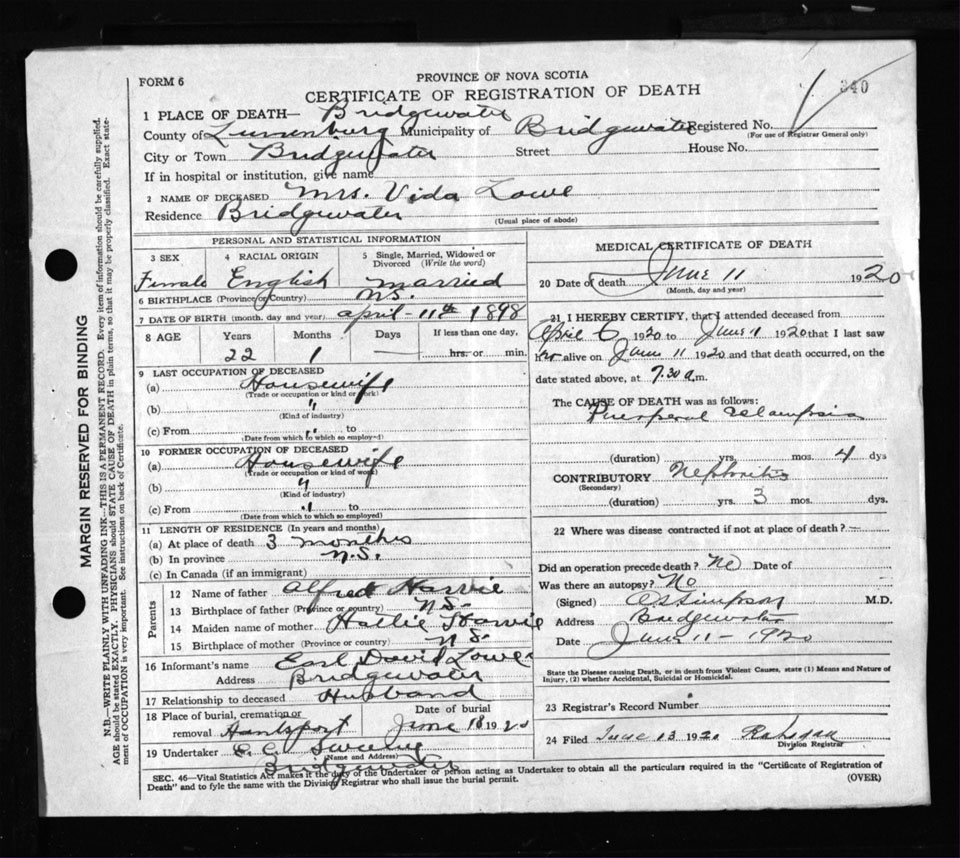 FORM 6
PROVINCE OF NOVA SCOTIA
CERTIFICATE OF REGISTRATION OF DEATH
340
1 PLACE OF DEATH— Bridgewater
County of Lunenburg Municipality of Bridgewater Registered No.
(For use of Registrar General only)
City or Town Bridgewater Street House No.
If in hospital or institution, give name
2 NAME OF DECEASED Mrs. Vida Lowe
Residence Bridgewater (Usual place of abode)
PERSONAL AND STATISTICAL INFORMATION
3 SEX 4 RACIAL ORIGIN 5 Single, Married, Widowed or Divorced (Write the word)
Female English Married
6 BIRTHPLACE (Province or Country) N.S.
7 DATE OF BIRTH (month, day and year) April - 11th 1898
8 AGE Years Months Days If less than one day,
22 1 — hrs. or min.
9 LAST OCCUPATION OF DECEASED
(a) Housewife
(Trade or occupation or kind of work)
(b) "
(Kind of industry)
(c) From " to
(Date from which to which so employed)
10 FORMER OCCUPATION OF DECEASED
(a) Housewife
(Trade or occupation or kind of work)
(b) "
(Kind of industry)
(c) From " to
(Date from which to which so employed)
11 LENGTH OF RESIDENCE (In years and months)
(a) At place of death 3 months
(b) In province N.S.
(c) In Canada (if an immigrant)
Parents
12 Name of father Alfred Harvie
13 Birthplace of father (Province or country) N.S.
14 Maiden name of mother Hallie Harvie
15 Birthplace of mother (Province or country) N.S.
16 Informant's name Earl David Lowe
Address Bridgewater
17 Relationship to deceased Husband
18 Place of burial, cremation or removal Hantsport Date of burial June 18 1920
19 Undertaker
(Name and Address)
Bridgewater
MEDICAL CERTIFICATE OF DEATH
20 Date of death June 11 1920
(Month, day and year)
21 I HEREBY CERTIFY, that I attended deceased from
April 6 1920 to June 11 1920 that I last saw
her alive on June 11 1920 and that death occurred, on the
date stated above, at 7.30 a.m.
The CAUSE OF DEATH was as follows:
Puerperal eclampsia
(duration) yrs. mos. 4 dys
CONTRIBUTORY Nephritis
(Secondary)
(duration) yrs. 3 mos. dys.
22 Where was disease contracted if not at place of death? —
Did an operation precede death? No Date of
Was there an autopsy? No
(Signed) Simpson M.D.
Address Bridgewater
Date June 11 - 1920
State the Disease causing Death, or in death from Violent Causes, state (1) Means and Nature of
Injury, (2) whether Accidental, Suicidal or Homicidal.
23 Registrar's Record Number
24 Filed June 13 1920
Division Registrar
SEC. 46—Vital Statistics Act makes it the duty of the Undertaker or person acting as Undertaker to obtain all the particulars required in the "Certificate of Registration of
Death" and to fyle the same with the Division Registrar who shall issue the burial permit. (OVER)
MARGIN RESERVED FOR BINDING
N.B.—WRITE PLAINLY WITH UNFADING INK—THIS IS A PERMANENT RECORD. Every item of information should be carefully supplied.
AGE should be stated EXACTLY. PHYSICIANS should STATE CAUSE OF DEATH in plain terms, so that it may be properly classified. Exact state-
ment of OCCUPATION is very important. See instructions on back of Certificate.